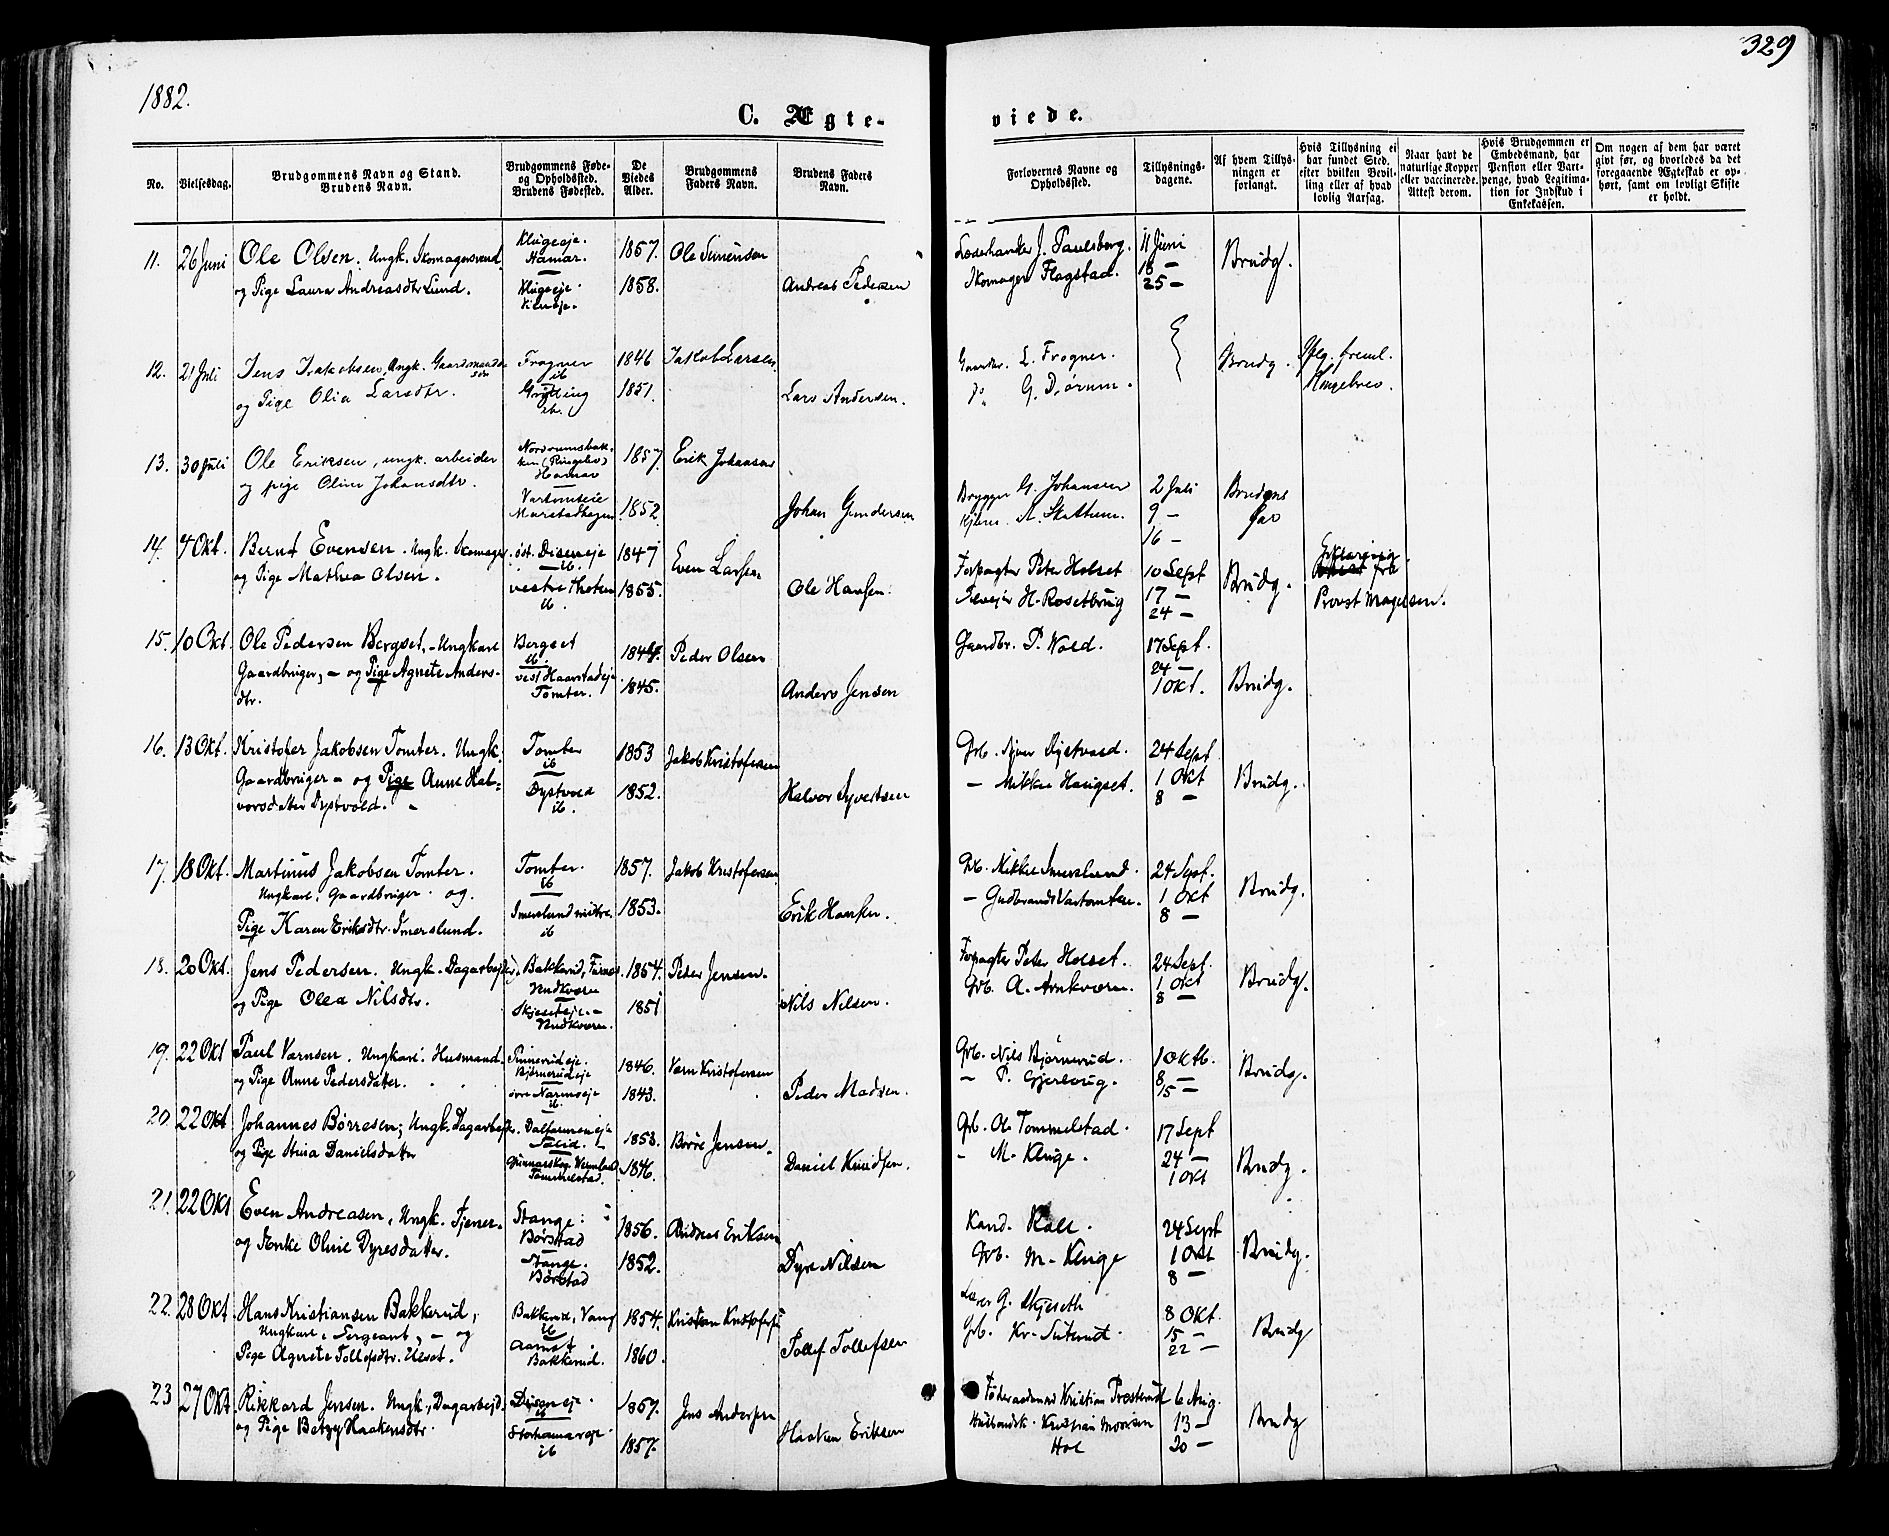 329
1882.
C. Ægte-
viede.
No.
Vielsesdag.
Brudgommens Navn og Stand.
Brudens Navn.
Brudgommens Føde-
og Opholdssted.
Brudens Fødested.
De
Viedes
Alder.
Brudgommens
Faders Navn.
Brudens Faders
Navn.
Forlovernes Navne og
Opholdssted.
Tillysnings-
dagene.
Af hvem Tillys-
ningen er
forlangt.
Hvis Tillysning ei
har fundet Sted,
efter hvilken Bevil-
ling eller af hvad
lovlig Aarsag.
Naar havt de
naturlige Kopper
eller vaccinerede.
Attest derom.
Hvis Brudgommen er
Embedsmand, har
Pension eller Vart-
penge, hvad Legitima-
tion for Indskud i
Enkekassen.
Om nogen af dem har været
givt før, og hvorledes da det
foregaaende Ægteskab er op-
hørt, samt om lovligt Skifte
er holdt.
11. 26 Juni Ole Olsen. Ungk. Skomagersvend
og Pige Laura Andreasdtr Lund.
Klugeeje.
Hamar.
Klugeeje.
1857.
1858.
Ole Simensen
Andreas Pedersen
Læderhandler J. Paulsberg.
Skomager Flagstad.
11 Juni
18 —
25 —
Brudg.
12. 21 Juli Jens Jakobsen, Ungk. Gaardmands-
søn
og Pige Olia Larsdtr.
Frogner
ib
Grytting
ib.
1846
1851.
Jakob Larsen
Lars Andersen.
L. Frogner.
Do G. Diørum.
Brudg.
Kongebrev.
13. 30 Juli Ole Eriksen, ungk. arbeider
og pige Oline Johansdtr.
(Ringebu)
Hamar
1857.
1852.
Erik Johansen
Johan Gundersen
Brygger G. Johansen
A. Skattum.
2 Juli
9 —
16 —
Brudens
Far
14. 4 Okt. Bernt Evensen. Ungk. Skomager
og Pige Mathea Olsen.
øst. Diseneje
ib.
vestre Thoten
ib.
1847
1855.
Even Larsen
Ole Hansen.
Forpagter Peter Holset
H. Rosetbrug
10 Sept
17 —
24 —
Brudg.
Erklæring
fra
Provst Magelsen.
15. 10 Okt. Ole Pedersen Bergset, - Ungkarl
Gaardbruger, - og Pige Agnete Anders-
dtr.
Bergset
ib.
vest Haarstadeje
Tomter.
1844.
1845.
Peder Olsen
Anders Jensen
Gaardbr. P. Vold.
17 Sept.
24 —
1 Okt.
Brudg.
16. 13 Okt. Kristofer Jakobsen Tomter. Ungk.
Gaardbruger - og Pige Anne Hal-
vorsdatter Dystvold.
Tomter
ib
Dystvold
ib.
1853
1852.
Jakob Kristofersen
Halvor Syvertsen
Grb. Syver Dystvold.
— Mikkel Haugset.
24 Sept.
1 Okt
8 —
Brudg.
17. 18 Okt. Martinus Jakobsen Tomter.
Ungkarl. Gaardbruger. og
Pige Karen Eriksdtr. Imerslund.
Tomter.
ib
Imerslund mitre.
ib
1857.
1853.
Jakob Kristofersen
Erik Hansen.
Grb. Mikkel Imerslund.
— Gudbrand Vartomten.
24 Sept.
1 Okt
8 —
Brudg.
18. 20 Okt. Jens Pedersen. Ungk. Dagarbejder.
og Pige Olea Nilsdtr.
Bakkerud, Furnes
Hudkværn
Skjeseteje.
Hudkværn.
1854.
1851
Peder Jensen.
Nils Nilsen.
Forpagter Peter Holset.
Grb. A. Arnkværn.
24 Sept.
1 Okt
8 —
Brudg.
19. 22 Okt Paul Varnsen. Ungkarl. Husmand
og Pige Anne Pedersdatter.
Finnerudeje.
Bjørnerudeje
ib.
1846.
1843.
Varn Kristofersen
Peder Madsen.
Grb. Nils Bjørnerud.
— P. Gjerlaug.
1 Oktb.
8 —
15 —
Brudg.
20. 22 Okt Johannes Børresen; Ungk. Dagarbejder.
og Pige Stina Danielsdatter
Dalfarmeneje
Gunnarskog Vermland
Tommelstad.
1853.
1846.
Børre Jensen.
Daniel Knudsen.
Grb. Ole Tommelstad.
— M. Kluge.
17 Sept
24 —
1 Okt
Brudg.
21. 22 Okt Even Andreasen, Ungk. Tjener.
og Enke Oline Dyresdatter.
Stange.
Børstad
Stange.
Børstad
1856.
1852.
Andreas Eriksen
Dyre Nilsen
Kand. Roll.
Grb. M. Kluge
24 Sept
1 Okt
8 —
Brudg.
22. 28 Okt. Hans Kristiansen Bakkerud,
Ungkarl, Sergeant, - og
Pige Agnete Tollefsdtr. Ulset.
Bakkerud, Vang
ib
Aamot.
Bakkerud.
1854.
1860.
Kristian Kristofersen
Tollef Tollefsen
Lærer G. Skjeseth
Grb. Kr. Seterud.
8 Okt.
15 —
22 —
Brudg
23 27 Okt. Rikkard Jensen. Ungk., Dagarbejd.
og Pige Betzy Haakensdtr.
Diseneje.
ib
Storhamareje.
ib
1857.
1857.
Jens Andersen
Haaken Eriksen
Føderaadsmand Kristian Prosterud
Kristian Moorsen
Hol
6 Aug.
13 —
20 —
Brudg